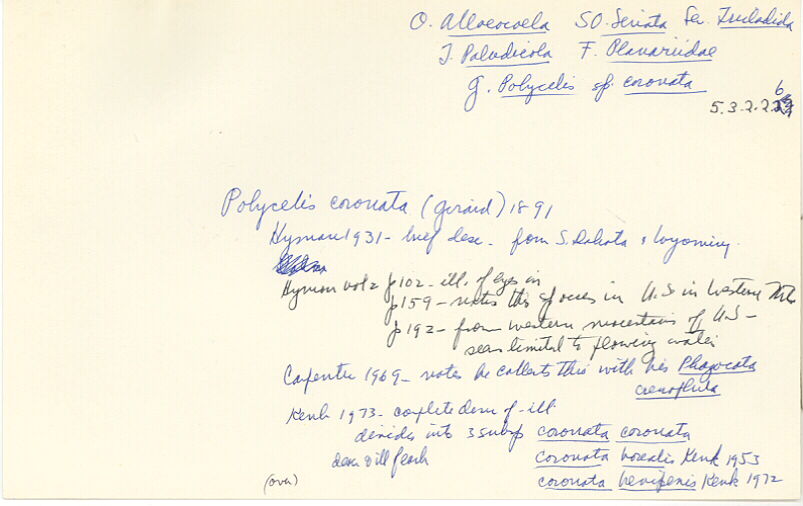 O. Alloeocoela SO. Seriata Ser. Tricladida
T. Paludicola F. Planariidae
g. Polycelis sp. coronata
5.3.2.2.6
Polycelis coronata (Girard) 1891
Hyman 1931 - brief desc. from S. Dakota & Wyoming.
Hyman vol 2 p102 - ill. of eyes in
p159 - notes this g occurs in U.S in Western Mts
p192 - from western mountains of U.S -
seems limited to flowing water
Carpenter 1969 - notes he collects this with his Phagocata
crenophila
Kenk 1973 - complete desc of - ill
divides into 3 subsp coronata coronata
desc & ill of each coronata borealis Kenk 1953
(over) coronata brevipenis Kenk 1972